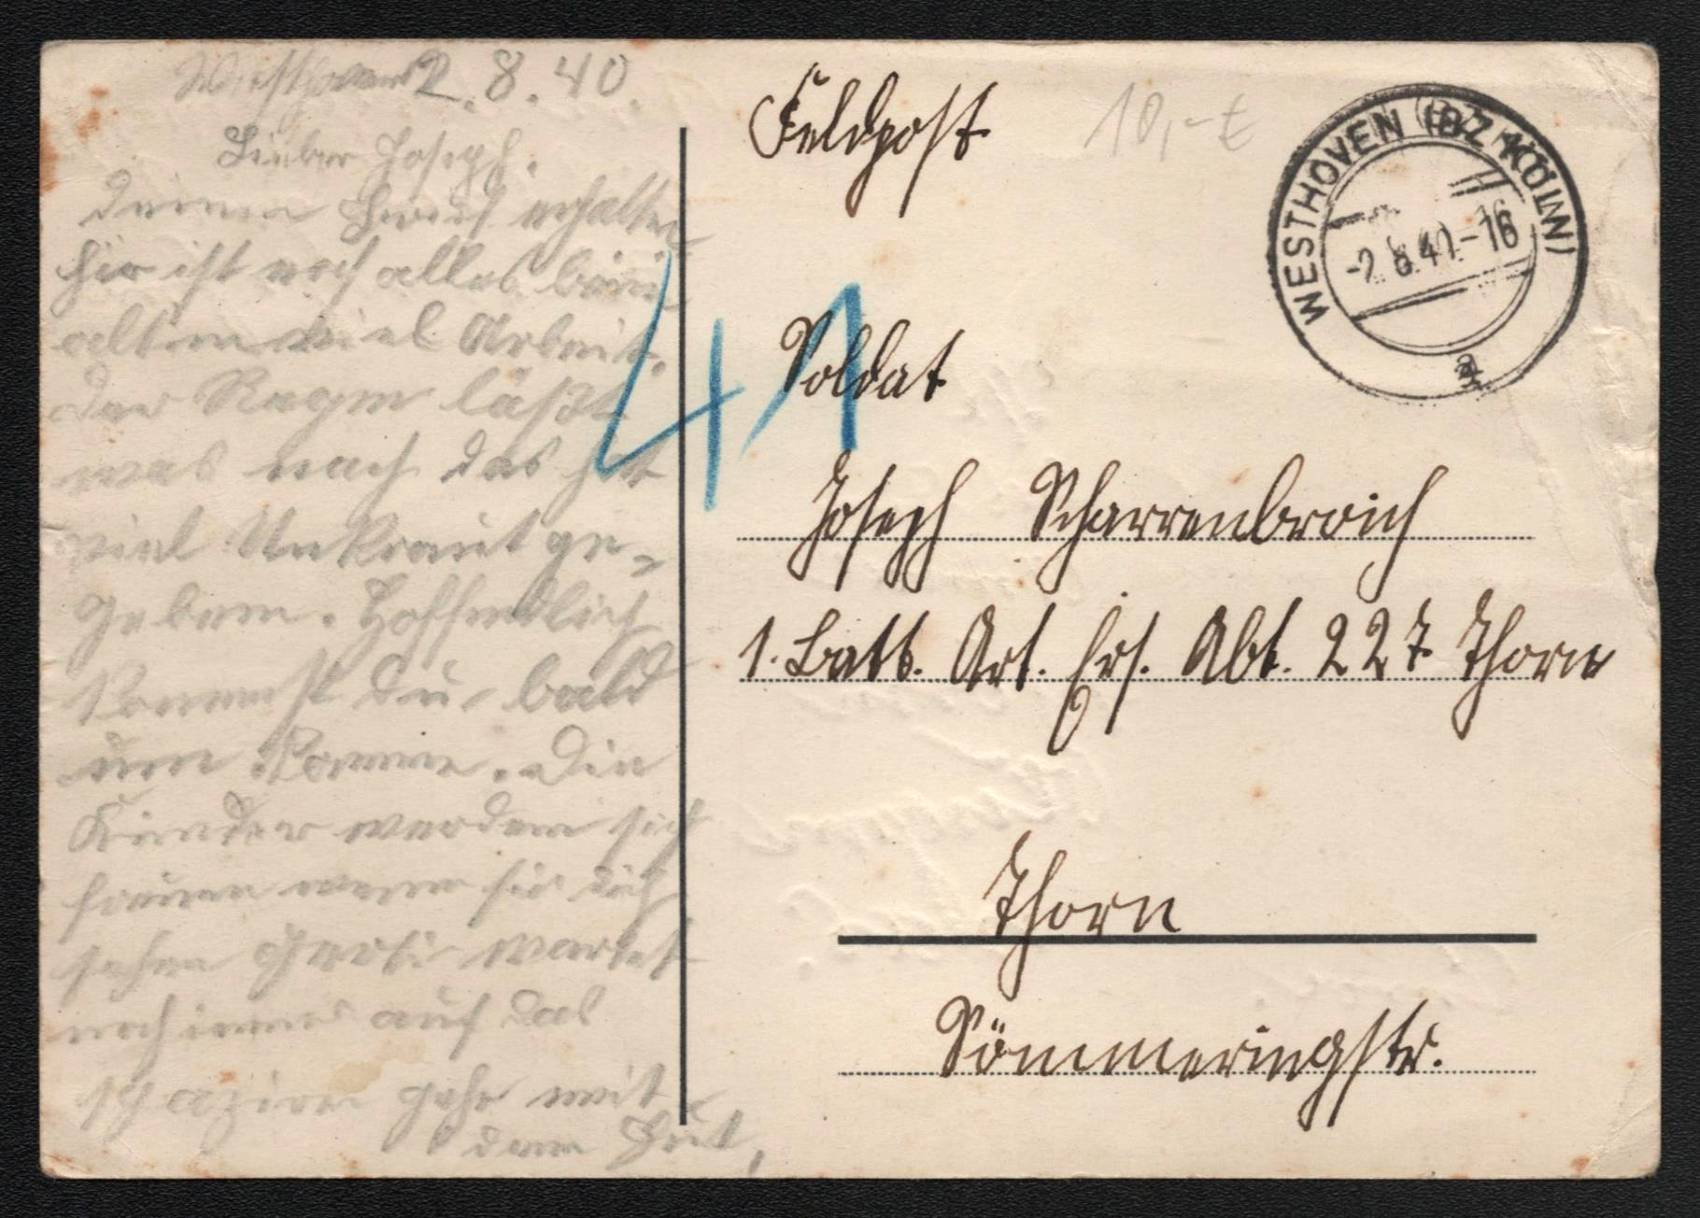 Westhoven 2.8.40.
Lieber Joseph.
Deinen Brief erhalten
hir ist noch alles beim
alten viel Arbeit.
Der Regen läßt
was nach das hat
viel Unkraut ge-
geben. Hoffentlich
kommst Du bald
um komme. Die
Kinder werden sich
freuen wenn sie dich
sehen wartet
noch immer auf das
spaziere gehe mit
dem
Feldpost
10,-€
WESTHOVEN (BZ KÖLN)
-2.8.40.-16
a
41
Soldat
Joseph Scharrenbroich
1. Batt. Art. Ers. Abt. 227 Thorn
Thorn
Sömmeringstr.